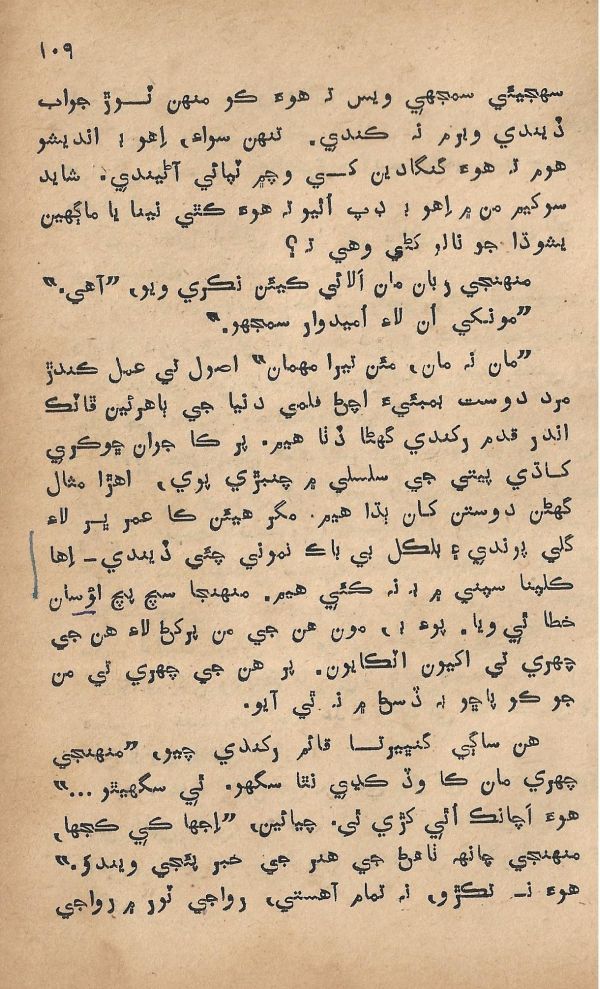 ١٠٩
سهجيئي سمجهي ويس ته هوءَ ڪو منهن ٽوڙ جواب
ڏيندي ويرم نه ڪندي. تنهن سواءِ، اِهو ۽ انديشو
هوم ته هوءَ گنگادين کي وچ ۾ نپائي آڻيندي. شايد
سوڪيم من ۾ اِهو ۽ ڊپ اُٿيو ته هوءَ ڪٿي نينا يا ماڳهين
يشوڌا جو نالو کڻي وهي ته؟
منهنجي زبان مان اَلائي ڪيئن نڪري ويو، ”آهي.“
”مونکي اُن لاءِ اُميدوار سمجهو.“
”مان نه مان، مئن تيرا مهمان“ اصول تي عمل ڪندڙ
مرد دوست بمبئيءَ اچڻ فلمي دنيا جي ٻاهرئين ڦاٽڪ
اندر قدم رکندي گهڻا ڏٺا هيم. پر ڪا جوان ڇوڪري
کاڌي پيتي جي سلسلي ۾ چنبڙي پوي، اهڙا مثال
گهڻن دوستن کان ٻڌا هيم. مگر هيئن ڪا عمر ڀر لاءِ
گلي پوندي ۽ بلڪل بي باڪ نموني چئي ڏيندي ـ اِها
ڪلپنا سپني ۾ به نه ڪئي هيم. منهنجا سچ پچ اؤسان
خطا ٿي ويا. پوءِ ۽، مون هن جي من پرکڻ لاءِ هن جي
چهري تي اکيون اٽڪايون. پر هن جي چهري تي من
جو ڪو پاڇو به ڏسڻ ۾ نه ٿي آيو.
هن ساڳي گنڀيرتا قائم رکندي چيو، ”منهنجي
چهري مان ڪا وڏ ڪڍي نٿا سگهو. ٿي سگهيٿو...“
هوءَ اَچانڪ اُٿي کڙي ٿي. چيائين، ”اِجها ڪي ڪجها،
منهنجي چانهه ٺاهڻ جي هنر جي خبر پئجي ويندوَ.“
هوءَ نه نڪڙو، نه تمام آهستي، رواجي ٽور ۾ رواجي